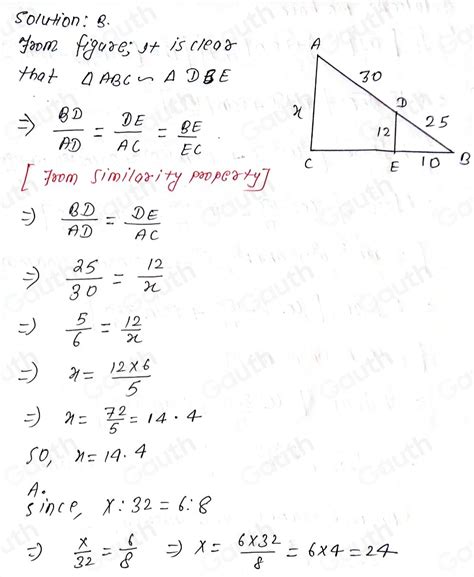 Solution: B.
From figure; It is clear
that △ABC ∼ △DBE
⇒ BD/AD = DE/AC = BE/EC
[From similarity property]
⇒ BD/AD = DE/AC
⇒ 25/30 = 12/x
⇒ 5/6 = 12/x
⇒ x = 12×6/5
⇒ x = 72/5 = 14.4
So, x = 14.4
A.
Since, x : 32 = 6 : 8
⇒ x/32 = 6/8 ⇒ x = 6×32/8 = 6×4 = 24
A
30
x
D
25
12
C
E
10
B
Gauth